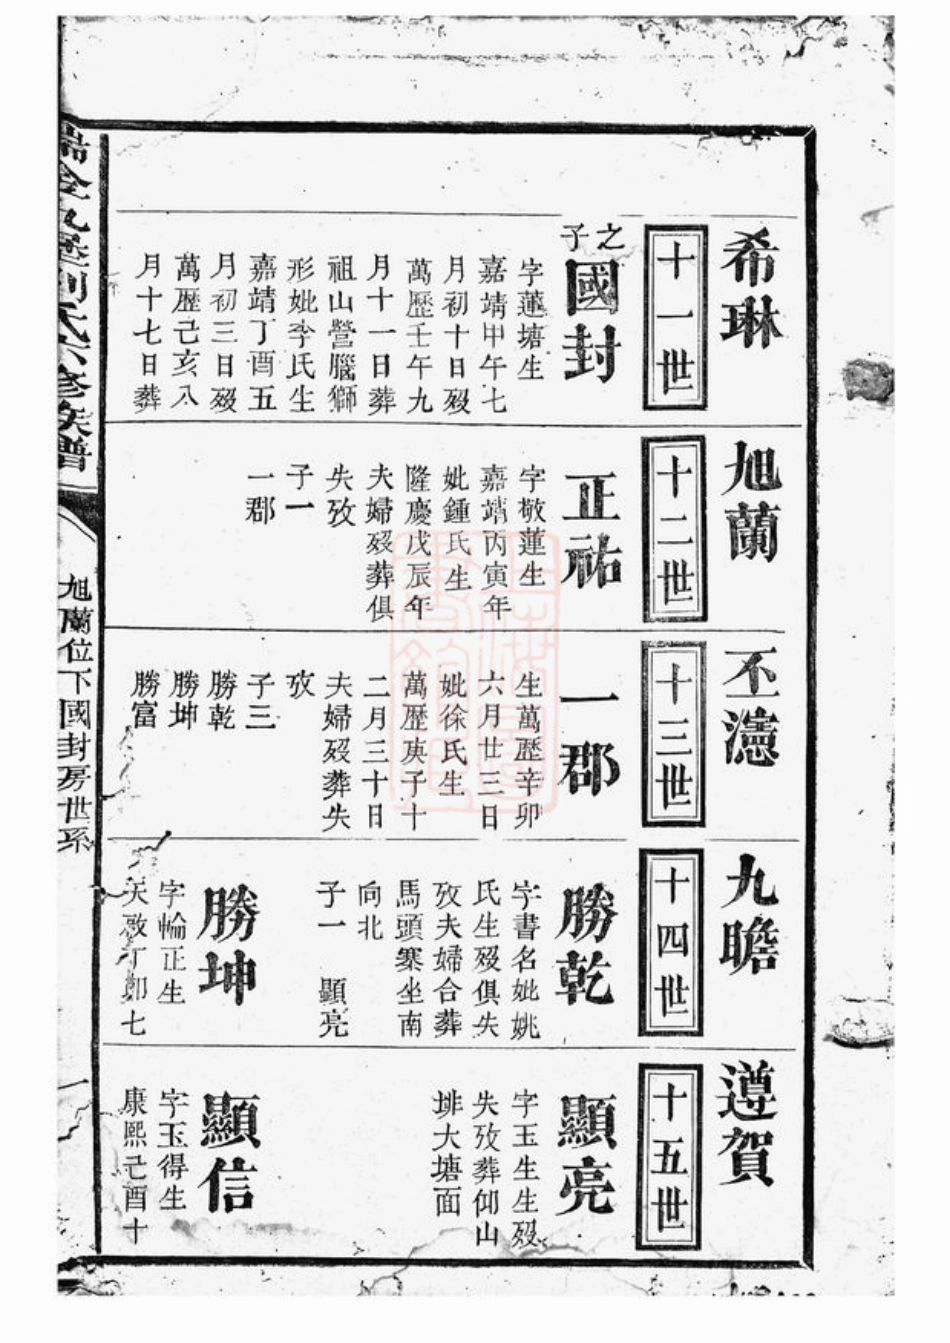 希琳
旭蘭
丕瀗
九瞻
遵賀
十一世
十二世
十三世
十四世
十五世
之子
國封
字蓮塘生
嘉靖甲午七
月初十日殁
萬歷壬午九
月十一日葬
祖山營腦獅
形妣李氏生
嘉靖丁酉五
月初三日殁
萬歷己亥八
月十七日葬
正祐
字敬蓮生
嘉靖丙寅年
妣鍾氏生
隆慶戊辰年
夫婦殁葬俱
失攷
子一
一郡
一郡
生萬歷辛卯
六月廿三日
妣徐氏生
萬歷庚子十
二月三十日
夫婦殁葬失
攷
子三
勝乾
勝坤
勝富
勝乾
字書名妣姚
氏生殁俱失
攷夫婦合葬
馬頭寨坐南
向北
子一 顯亮
勝坤
字輪正生
天啟丁卯七
顯亮
字玉生生殁
失攷葬仰山
排大塘面
顯信
字玉得生
康熙己酉十
劉氏六修族譜
旭蘭位下國封房世系
一